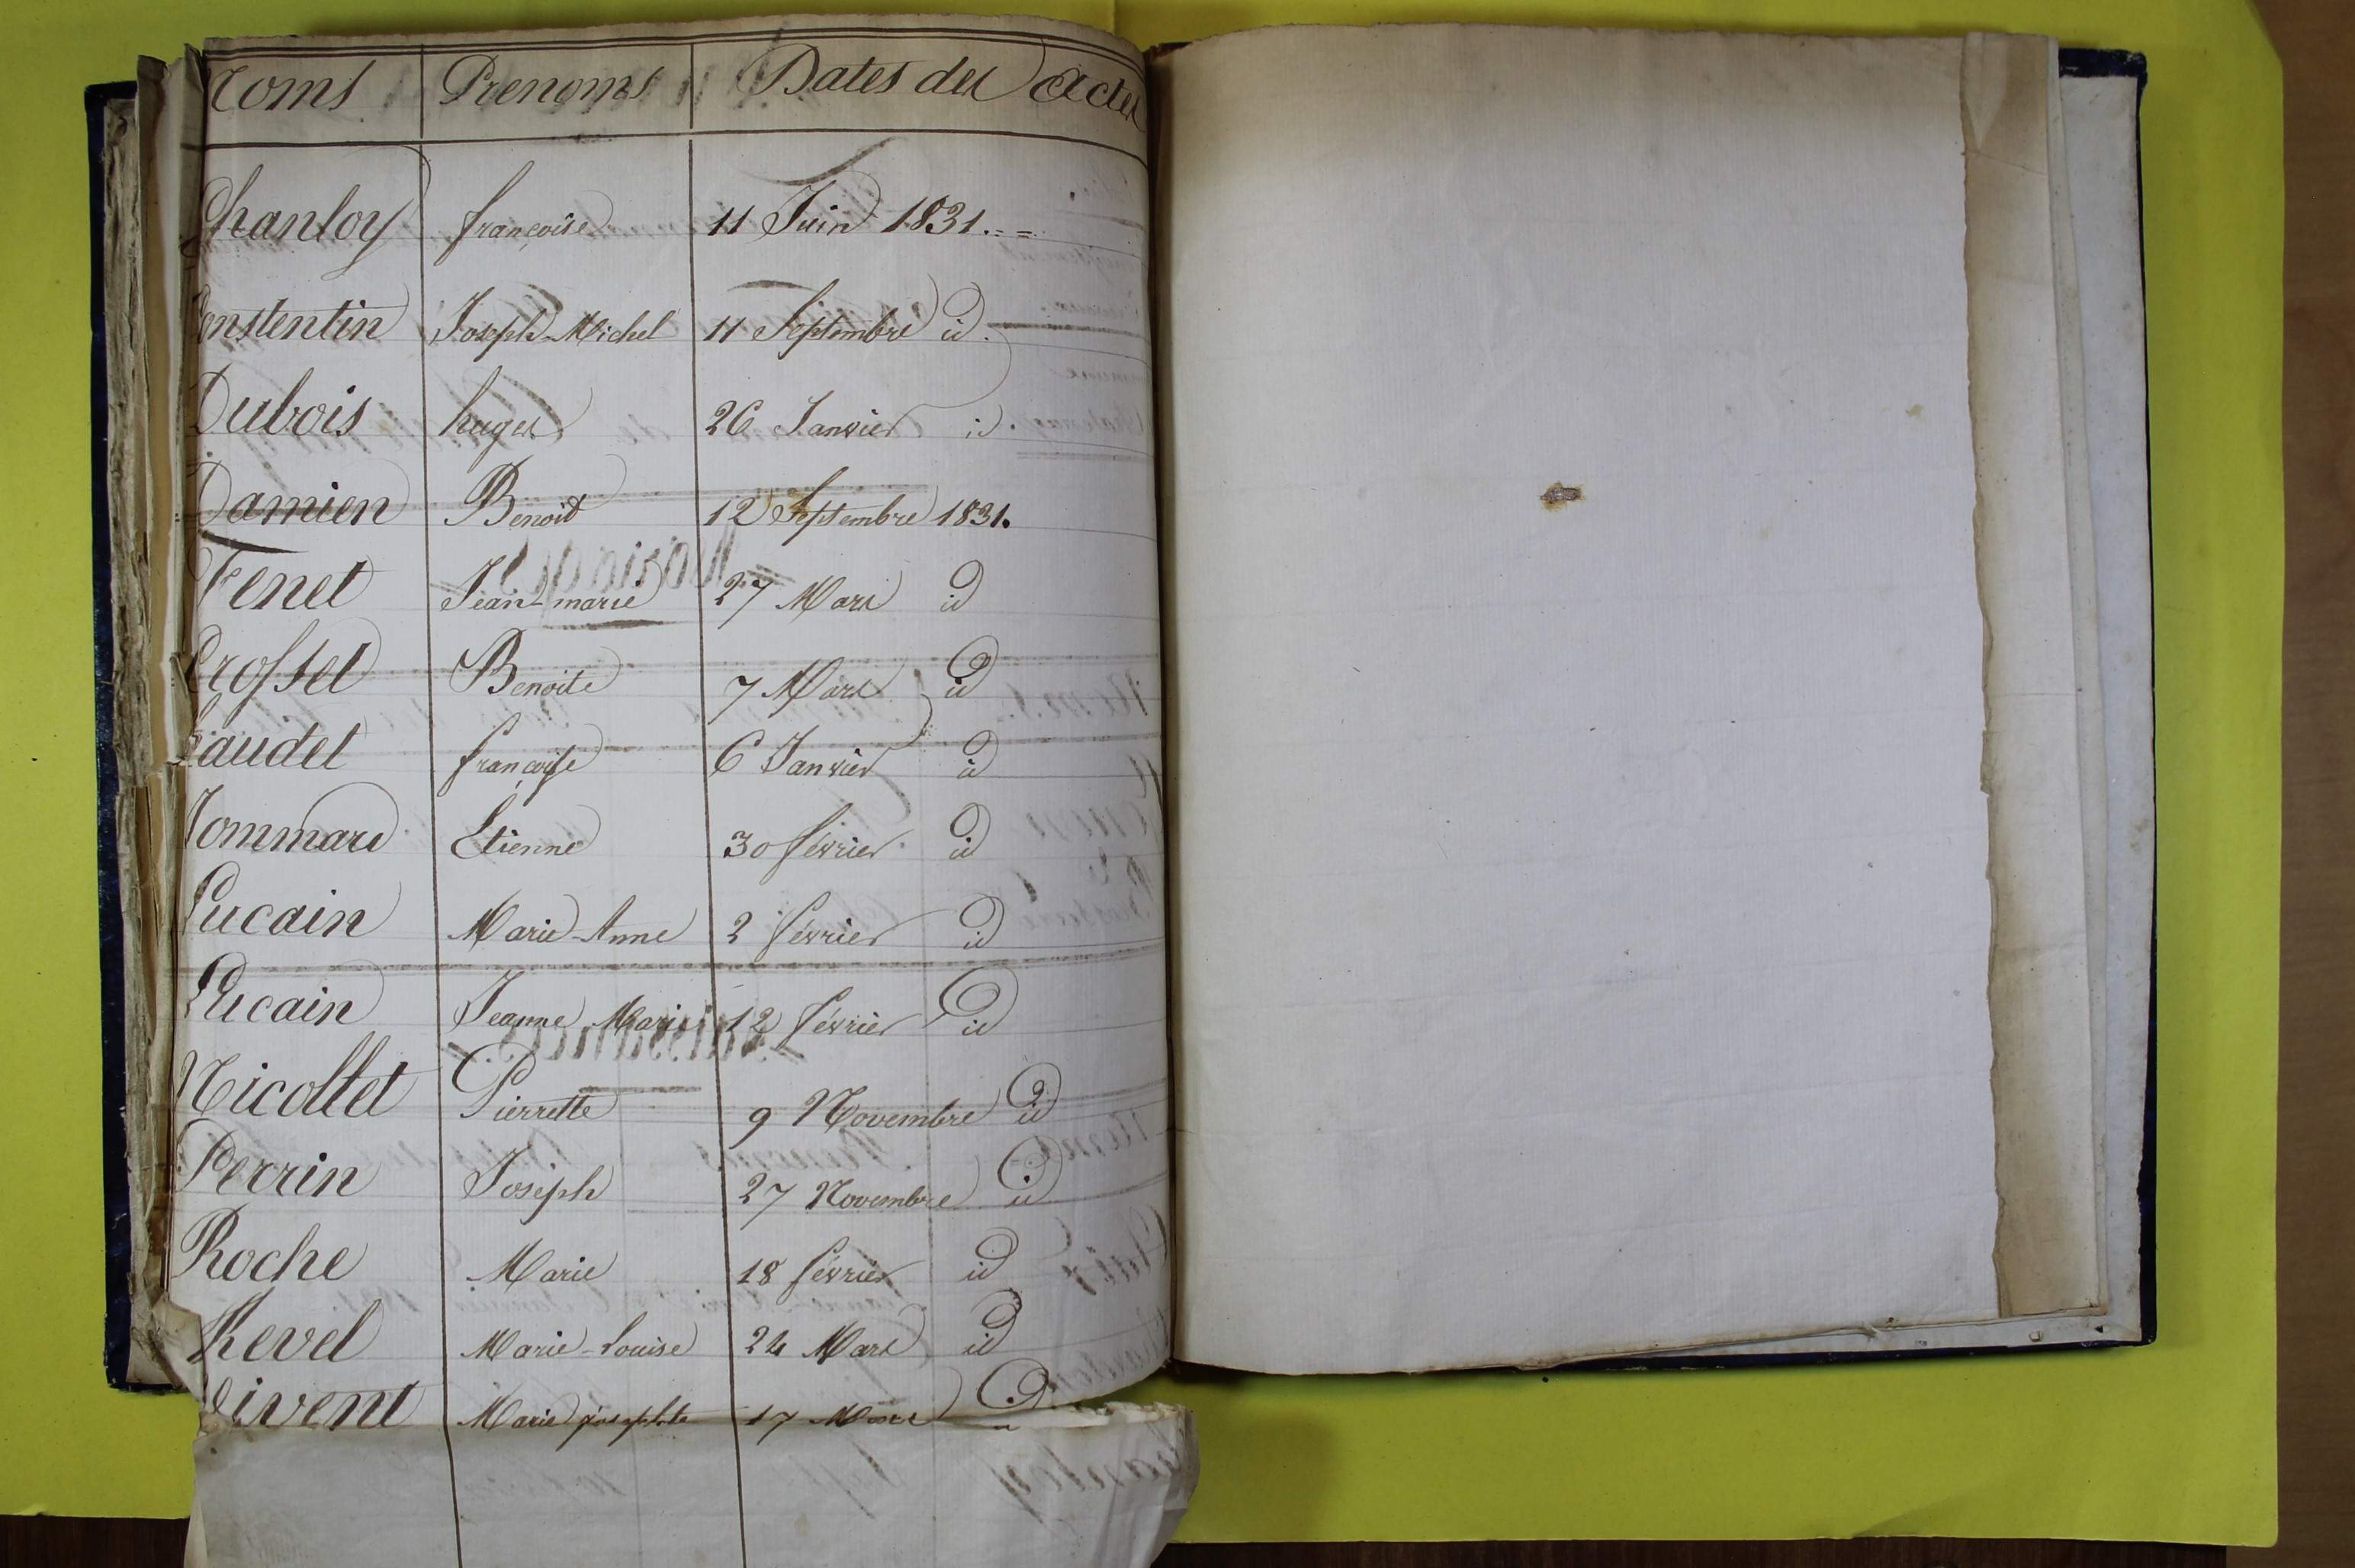 Noms Prenoms Dates des Actes
Chanloy françoise 11 Juin 1831.
Constentin Joseph-Michel 11 Septembre id.
Dubois hugues 26 Janvier id.
Damien Benoit 12 Septembre 1831.
Fenet Jean-marie 27 Mars id
Benoite 7 Mars id
françoise 6 Janvier id
Etienne 30 février id
Lucain Marie-Anne 2 février id
Lucain Jeanne Marie 12 février id
Nicollet Pierrette 9 Novembre id
Perrin Joseph 27 Novembre id
Roche Marie 18 février id
Revel Marie-Louise 24 Mars id
Vivent Marie josephte 17 Mars id